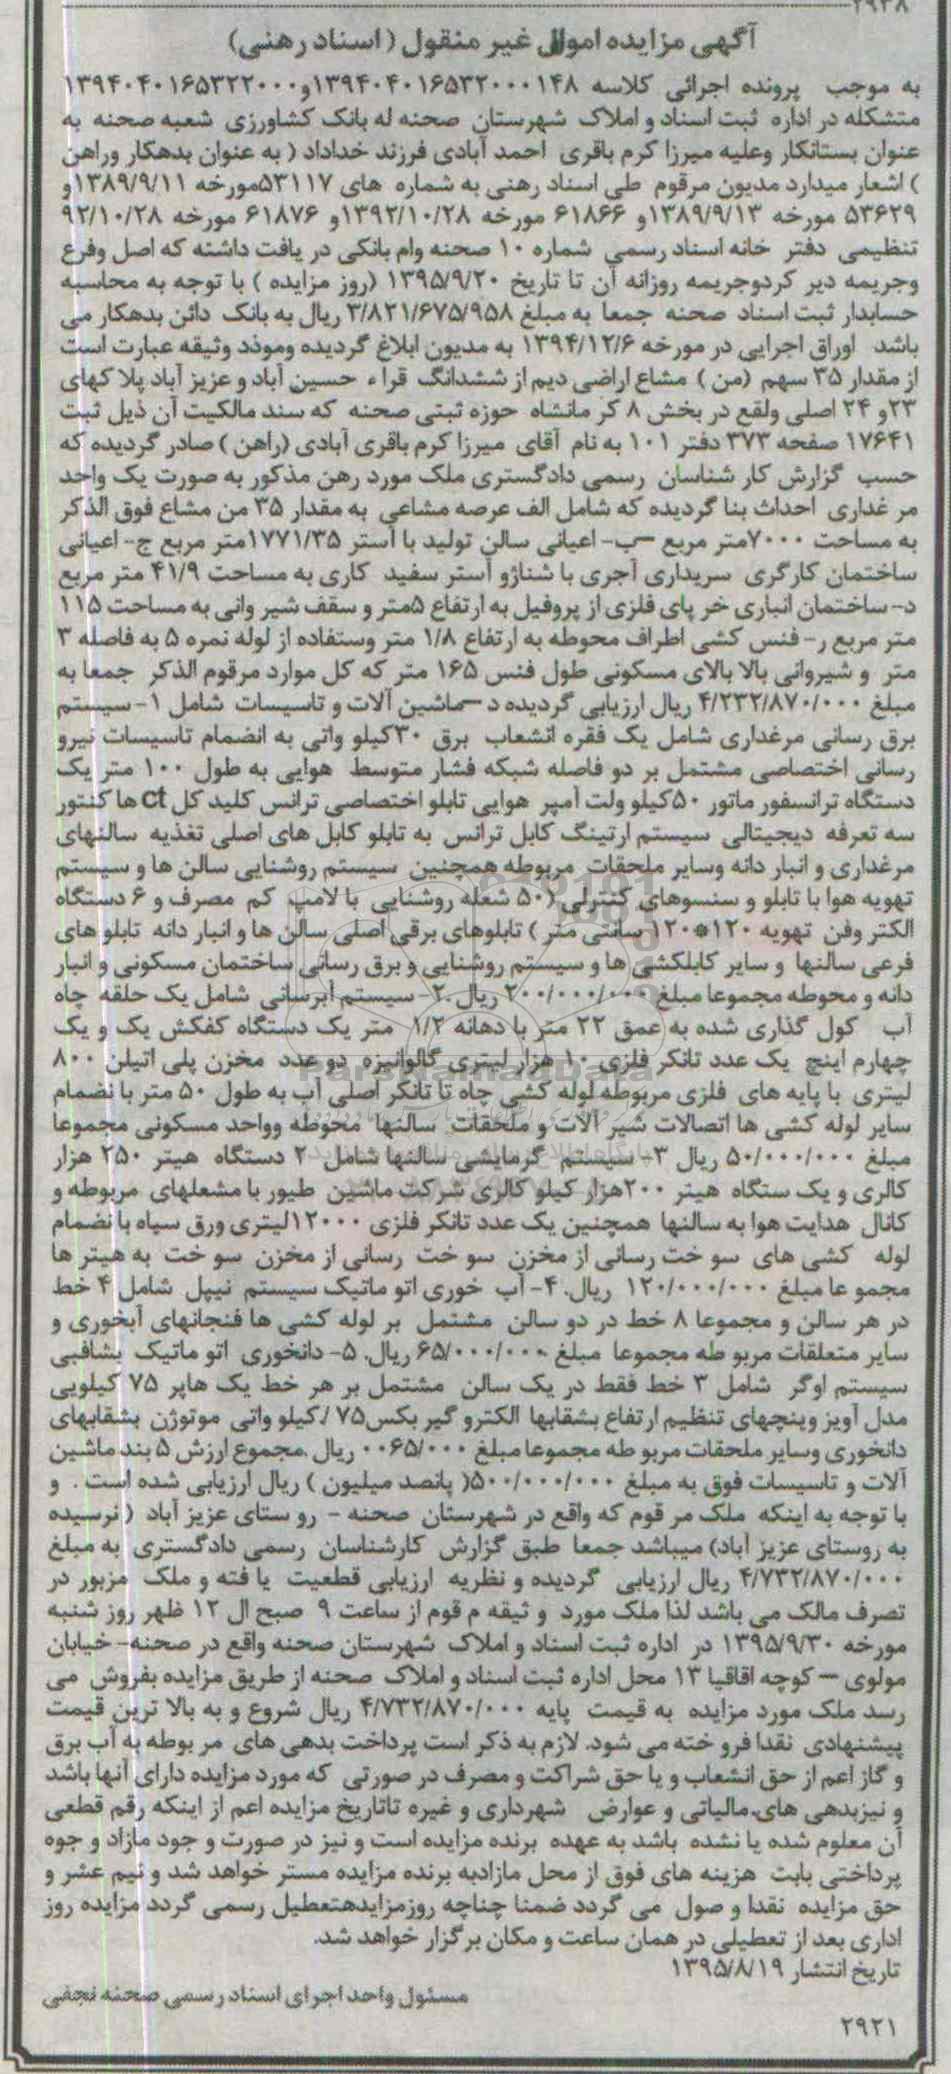 ۲۹۳۸
آگهی مزایده اموال غیر منقول (اسناد رهنی)
به موجب پرونده اجرائی کلاسه ۱۳۹۴۰۴۰۱۶۵۳۲۰۰۰۱۴۸و۱۳۹۴۰۴۰۱۶۵۳۲۲۰۰۰
متشکله در اداره ثبت اسناد و املاک شهرستان صحنه له بانک کشاورزی شعبه صحنه به
عنوان بستانکار وعلیه میرزا کرم باقری احمد آبادی فرزند خداداد ( به عنوان بدهکار وراهن
) اشعار میدارد مدیون مرقوم طی اسناد رهنی به شماره های ۵۳۱۱۷مورخه ۱۳۸۹/۹/۱۱و
۵۳۶۲۹ مورخه ۱۳۸۹/۹/۱۳و ۶۱۸۶۶ مورخه ۱۳۹۲/۱۰/۲۸و ۶۱۸۷۶ مورخه ۹۲/۱۰/۲۸
تنظیمی دفتر خانه اسناد رسمی شماره ۱۰ صحنه وام بانکی در یافت داشته که اصل وفرع
وجریمه دیر کردوجریمه روزانه آن تا تاریخ ۱۳۹۵/۹/۲۰ (روز مزایده ) با توجه به محاسبه
حسابدار ثبت اسناد صحنه جمعا به مبلغ ۳/۸۲۱/۶۷۵/۹۵۸ ریال به بانک دائن بدهکار می
باشد اوراق اجرایی در مورخه ۱۳۹۴/۱۲/۶ به مدیون ابلاغ گردیده وموذد وثیقه عبارت است
از مقدار ۳۵ سهم (من ) مشاع اراضی دیم از ششدانگ قراء حسین آباد و عزیز آباد پلا کهای
۲۳و ۲۴ اصلی ولقع در بخش ۸ کر مانشاه حوزه ثبتی صحنه که سند مالکیت آن ذیل ثبت
۱۷۶۴۱ صفحه ۳۷۳ دفتر ۱۰۱ به نام آقای میرزا کرم باقری آبادی (راهن ) صادر گردیده که
حسب گزارش کار شناسان رسمی دادگستری ملک مورد رهن مذکور به صورت یک واحد
مر غداری احداث بنا گردیده که شامل الف عرصه مشاعی به مقدار ۳۵ من مشاع فوق الذکر
به مساحت ۷۰۰۰متر مربع –ب- اعیانی سالن تولید با آستر ۱۷۷۱/۳۵متر مربع ج- اعیانی
ساختمان کارگری سریداری آجری با شناژو آستر سفید کاری به مساحت ۴۱/۹ متر مربع
د- ساختمان انباری خر پای فلزی از پروفیل به ارتفاع ۵متر و سقف شیر وانی به مساحت ۱۱۵
متر مربع ر- فنس کشی اطراف محوطه به ارتفاع ۱/۸ متر وستفاده از لوله نمره ۵ به فاصله ۳
متر و شیروانی بالا بالای مسکونی طول فنس ۱۶۵ متر که کل موارد مرقوم الذکر جمعا به
مبلغ ۴/۲۳۲/۸۷۰/۰۰۰ ریال ارزیابی گردیده د –ماشین آلات و تاسیسات شامل ۱- سیستم
برق رسانی مرغداری شامل یک فقره انشعاب برق ۳۰کیلو واتی به انضمام تاسیسات نیرو
رسانی اختصاصی مشتمل بر دو فاصله شبکه فشار متوسط هوایی به طول ۱۰۰ متر یک
دستگاه ترانسفور ماتور ۵۰کیلو ولت آمپر هوایی تابلو اختصاصی ترانس کلید کل ct ها کنتور
سه تعرفه دیجیتالی سیستم ارتینگ کابل ترانس به تابلو کابل های اصلی تغذیه سالنهای
مرغداری و انبار دانه وسایر ملحقات مربوطه همچنین سیستم روشنایی سالن ها و سیستم
تهویه هوا با تابلو و سنسوهای کنترلی (۵۰ شعله روشنایی با لامپ کم مصرف و ۶ دستگاه
الکتر وفن تهویه ۱۲۰*۱۲۰ سانتی متر ) تابلوهای برقی اصلی سالن ها و انبار دانه تابلو های
فرعی سالنها و سایر کابلکشی ها و سیستم روشنایی و برق رسانی ساختمان مسکونی و انبار
دانه و محوطه مجموعا مبلغ ۲۰۰/۰۰۰/۰۰۰ ریال .۲- سیستم آبرسانی شامل یک حلقه چاه
آب کول گذاری شده به عمق ۲۲ متر با دهانه ۱/۲ متر یک دستگاه کفکش یک و یک
چهارم اینچ یک عدد تانکر فلزی ۱۰ هزار لیتری گالوانیزه دو عدد مخزن پلی اتیلن ۸۰۰
لیتری با پایه های فلزی مربوطه لوله کشی چاه تا تانکر اصلی آب به طول ۵۰ متر با نضمام
سایر لوله کشی ها اتصالات شیر آلات و ملحقات سالنها محوطه وواحد مسکونی مجموعا
مبلغ ۵۰/۰۰۰/۰۰۰ ریال ۳- سیستم گرمایشی سالنها شامل ۲ دستگاه هیتر ۲۵۰ هزار
کالری و یک ستگاه هیتر ۲۰۰هزار کیلو کالری شرکت ماشین طیور با مشعلهای مربوطه و
کانال هدایت هوا به سالنها همچنین یک عدد تانکر فلزی ۱۲۰۰۰لیتری ورق سیاه با نضمام
لوله کشی های سو خت رسانی از مخزن سو خت رسانی از مخزن سو خت به هیتر ها
مجمو عا مبلغ ۱۲۰/۰۰۰/۰۰۰ ریال. ۴- آب خوری اتو ماتیک سیستم نیپل شامل ۴ خط
در هر سالن و مجموعا ۸ خط در دو سالن مشتمل بر لوله کشی ها فنجانهای آبخوری و
سایر متعلقات مربو طه مجموعا مبلغ ۶۵/۰۰۰/۰۰۰ ریال. ۵- دانخوری اتو ماتیک بشافبی
سیستم اوگر شامل ۳ خط فقط در یک سالن مشتمل بر هر خط یک هاپر ۷۵ کیلویی
مدل آویز وینچهای تنظیم ارتفاع بشقابها الکترو گیر بکس۷۵ /.کیلو واتی موتوژن بشقابهای
دانخوری وسایر ملحقات مربو طه مجموعا مبلغ ۰۰۶۵/۰۰۰ ریال .مجموع ارزش ۵ بند ماشین
آلات و تاسیسات فوق به مبلغ ۵۰۰/۰۰۰/۰۰۰( پانصد میلیون ) ریال ارزیابی شده است . و
با توجه به اینکه ملک مر قوم که واقع در شهرستان صحنه - رو ستای عزیز آباد (نرسیده
به روستای عزیز آباد) میباشد جمعا طبق گزارش کارشناسان رسمی دادگستری به مبلغ
۴/۷۳۲/۸۷۰/۰۰۰ ریال ارزیابی گردیده و نظریه ارزیابی قطعیت یا فته و ملک مزبور در
تصرف مالک می باشد لذا ملک مورد و ثیقه م قوم از ساعت ۹ صبح ال ۱۲ ظهر روز شنبه
مورخه ۱۳۹۵/۹/۳۰ در اداره ثبت اسناد و املاک شهرستان صحنه واقع در صحنه- خیابان
مولوی – کوچه اقاقیا ۱۳ محل اداره ثبت اسناد و املاک صحنه از طریق مزایده بفروش می
رسد ملک مورد مزایده به قیمت پایه ۴/۷۳۲/۸۷۰/۰۰۰ ریال شروع و به بالا ترین قیمت
پیشنهادی نقدا فرو خته می شود. لازم به ذکر است پرداخت بدهی های مر بوطه به آب برق
و گاز اعم از حق انشعاب و یا حق شراکت و مصرف در صورتی که مورد مزایده دارای آنها باشد
و نیزبدهی های.مالیاتی و عوارض شهرداری و غیره تاتاریخ مزایده اعم از اینکه رقم قطعی
آن معلوم شده یا نشده باشد به عهده برنده مزایده است و نیز در صورت و جود مازاد و جوه
پرداختی بابت هزینه های فوق از محل مازادبه برنده مزایده مستر خواهد شد و نیم عشر و
حق مزایده نقدا و صول می گردد ضمنا چناچه روزمزایدهتعطیل رسمی گردد مزایده روز
اداری بعد از تعطیلی در همان ساعت و مکان برگزار خواهد شد.
تاریخ انتشار ۱۳۹۵/۸/۱۹
مسئول واحد اجرای اسناد رسمی صحنه نجفی
۲۹۲۱
ParsNamadData